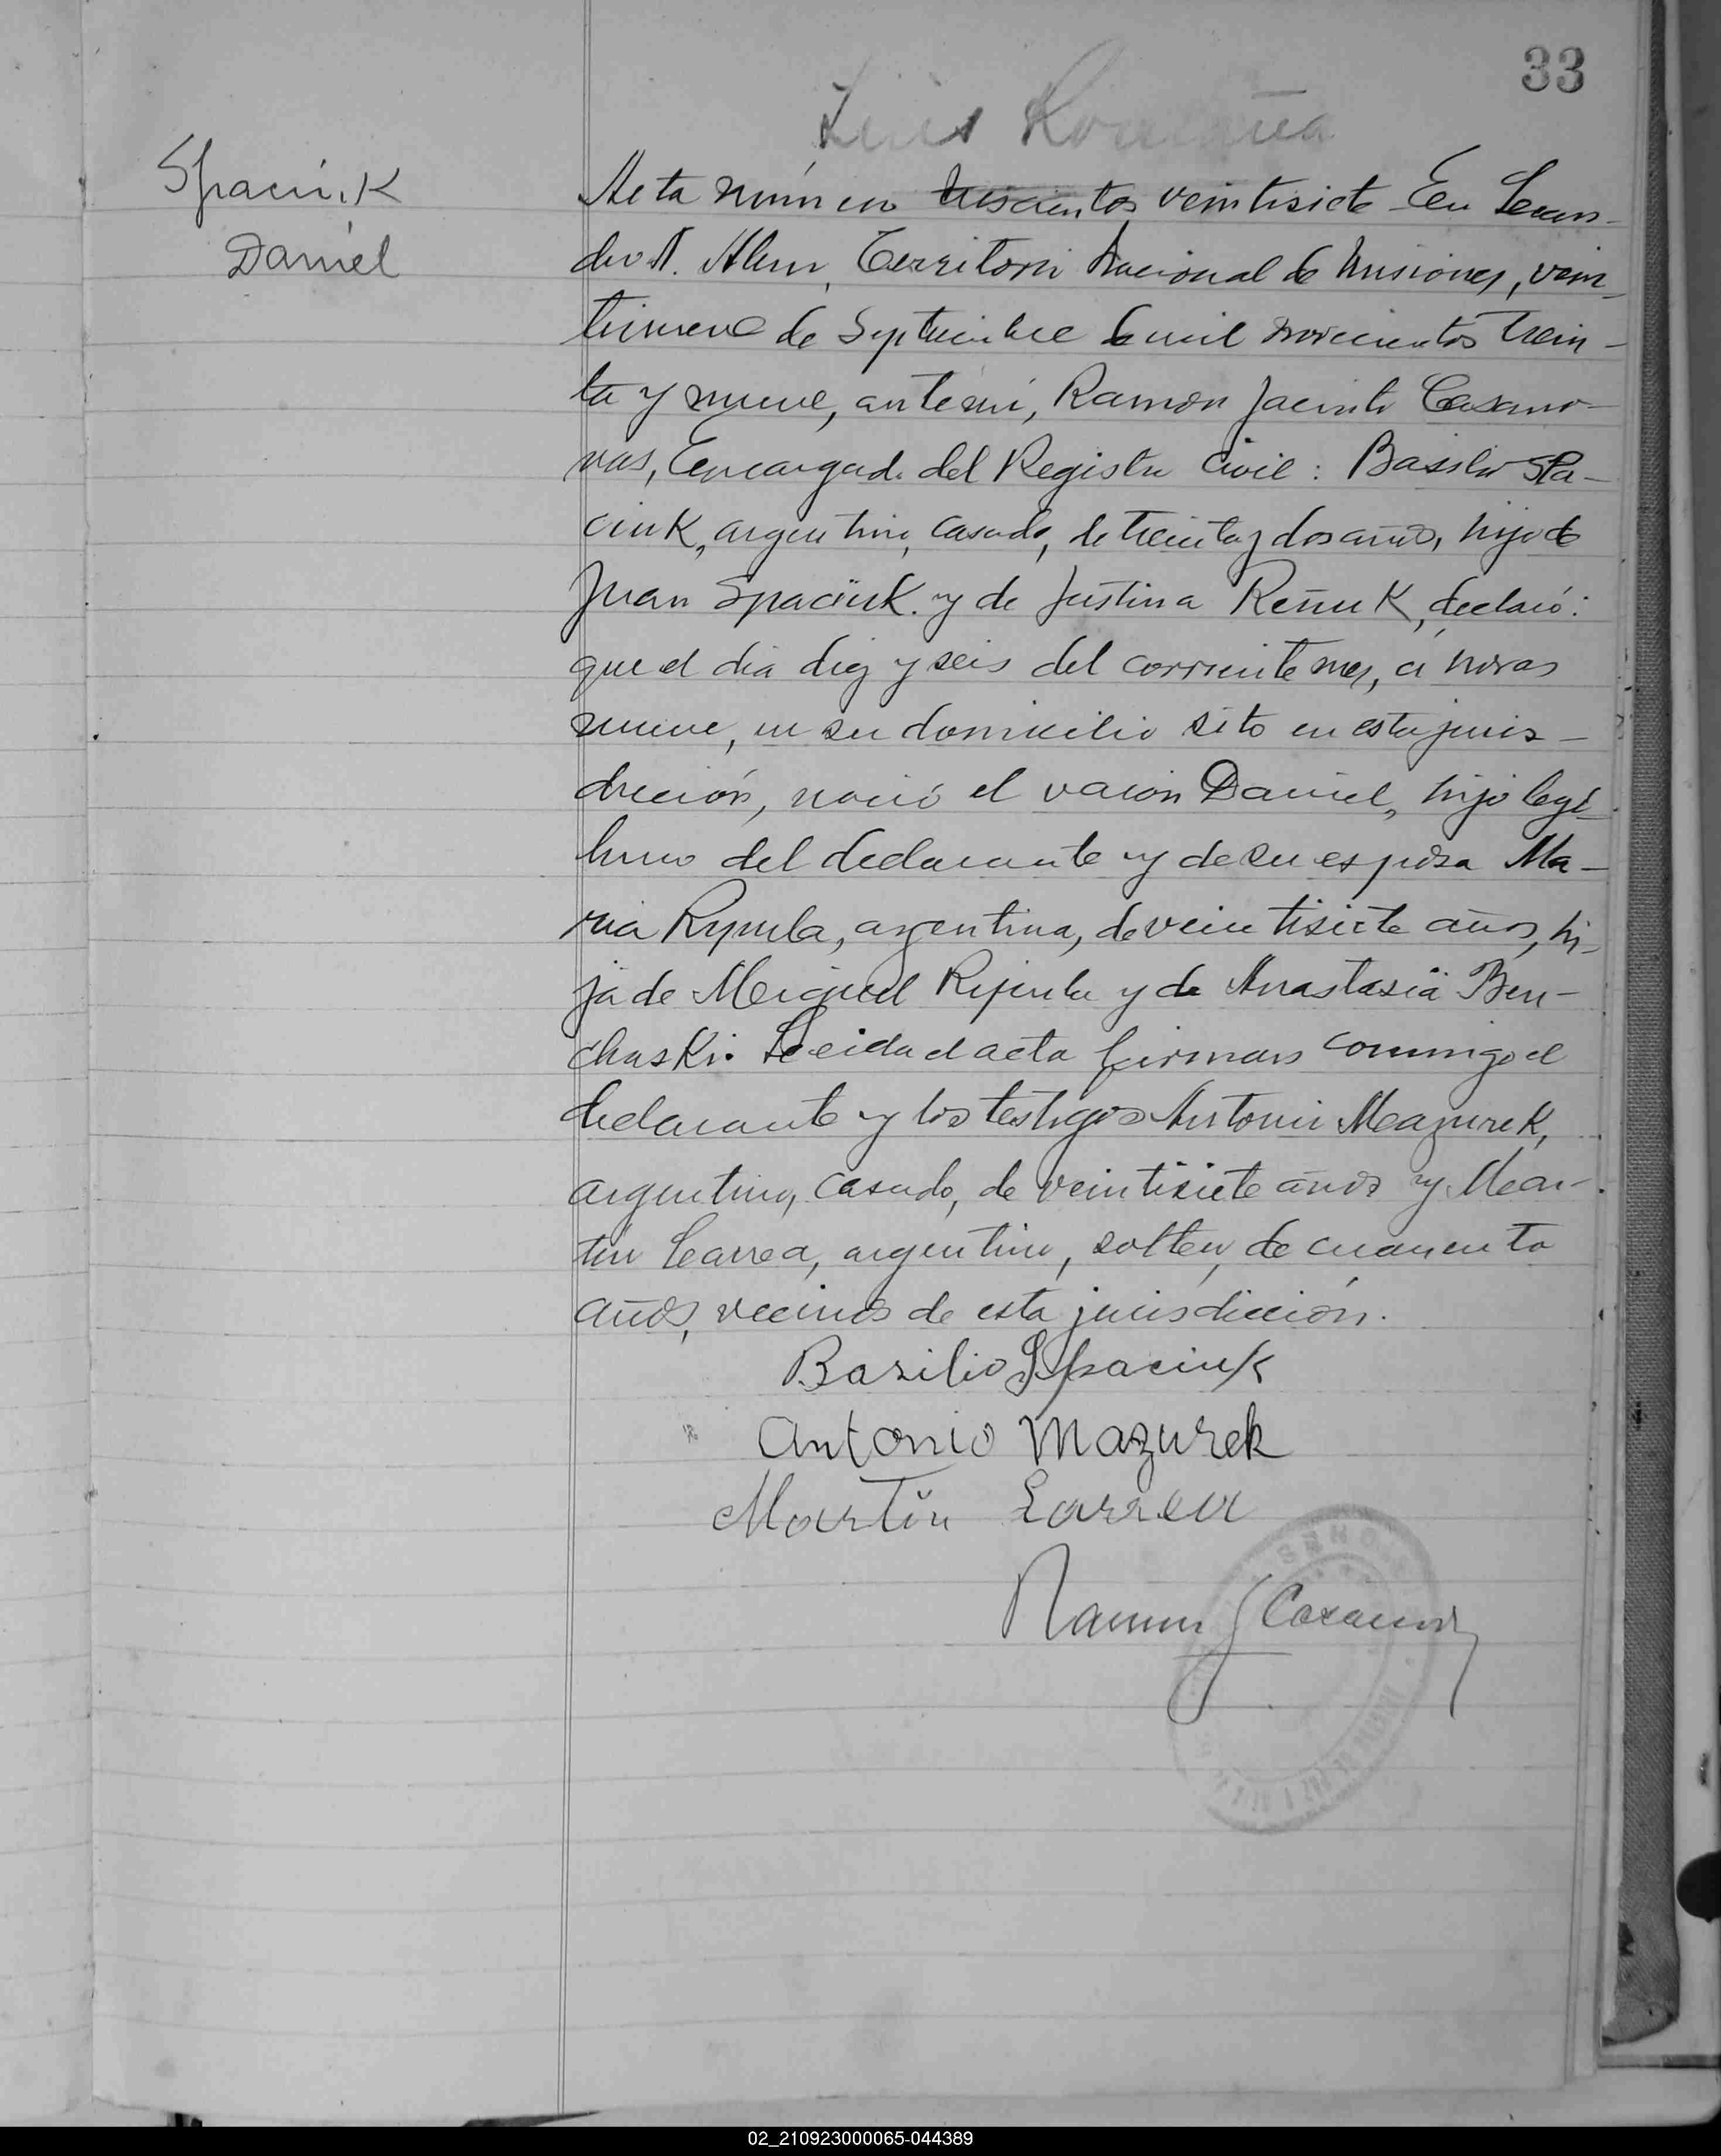 33
Luis
Spaciuk
Daniel
Acta número trescientos veintisiete En Lean-
dro N. Alem, Territorio Nacional de Misiones, vein-
tinueve de Septiembre de mil novecientos trein-
ta y nueve, ante mi, Ramon Jacinto Casano-
vas, Encargado del Registro Civil: Basilio Spa-
ciuk, argentino, casado, de treinta y dos años, hijo de
Juan Spaciuk y de Justina Reñuk, declaró:
que el dia diez y seis del corriente mes, a horas
nueve, en su domicilio sito en esta juris-
dicción, nació el varon Daniel, hijo legi-
timo del declarante y de su esposa Ma-
ria Rynula, argentina, de veintisiete años, hi-
ja de Miguel y de Anastasia Ben-
chaski. Leida el acta firman conmigo el
declarante y los testigos Antonio Mazurek,
argentino, casado, de veintisiete años y Mar-
tin Larrea, argentino, soltero, de cuarenta
años, vecinos de esta jurisdicción.
Basilio Spaciuk
Antonio Mazurek
Martin Larrea
Ramon J Casanovas
02_210923000065-044389